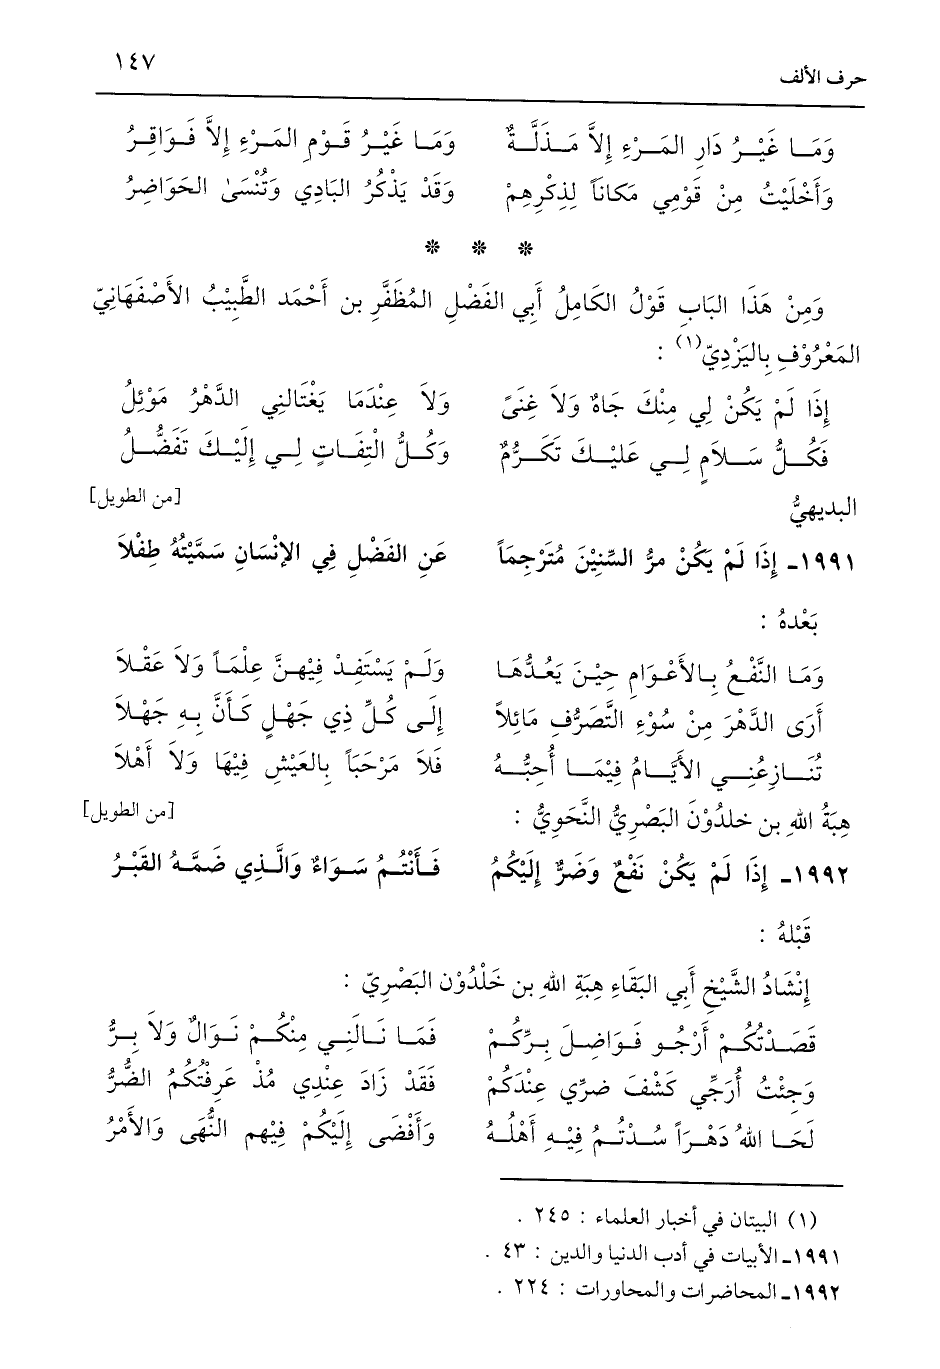 حرف الألف ١٤٧
وَمَـا غَيْـرُ دَارِ المَـرْءِ إلاَّ مَـذَلَّـةٌ وَمَـا غَيْـرُ قَـوْمِ المَـرْءِ إلاَّ فَـوَاقِـرُ
وَأَخْلَيْتُ مِنْ قَوْمِي مَكَاناً لِذِكْرِهِمْ وَقَدْ يَذْكُرُ البَادِي وَتُنْسَىٰ الحَوَاضِرُ
* * *
وَمِنْ هَذَا البَابِ قَوْلُ الكَامِلُ أَبِي الفَضْلِ المُظَفَّرِ بن أَحْمَد الطَّبِيْبُ الأَصْفَهَانِيّ
المَعْرُوْفِ بِاليَزْدِيّ(١) :
إِذَا لَمْ يَكُنْ لِي مِنْكَ جَاهٌ وَلاَ غِنَىً وَلاَ عِنْدَمَا يَغْتَالنِي الدَّهْرُ مَوْئِلُ
فَكُـلُّ سَـلاَمٍ لِـي عَلَيْـكَ تَكَـرُّمٌ وَكُـلُّ الْتِفَـاتٍ لِـي إِلَيْـكَ تَفَضُّـلُ
البديهيُّ [من الطويل]
١٩٩١ـ إِذَا لَمْ يَكُنْ مرُّ السِّنِيْنَ مُتَرْجِمَاً عَنِ الفَضْلِ فِي الإنْسَانِ سَمَّيْتُهُ طِفْلاَ
بَعْدهُ :
وَمَـا النَّفْـعُ بِـالأَعْـوَامِ حِيْـنَ يَعُـدُّهَـا وَلَـمْ يَسْتَفِـدْ فِيْهِـنَّ عِلْمَـاً وَلاَ عَقْـلاَ
أَرَى الدَّهْرَ مِنْ سُوْءِ التَّصَرُّفِ مَائِلاً إِلَى كُلِّ ذِي جَهْلٍ كَأَنَّ بِهِ جَهْلاَ
تُنَـازِعُنِـي الأَيَّـامُ فِيْمَـا أُحِبُّـهُ فَلاَ مَرْحَبَاً بِالعَيْشِ فِيْهَا وَلاَ أَهْلاَ
هِبَةُ اللهِ بن خلدُوْنَ البَصْرِيُّ النَّحَوِيُّ : [من الطويل]
١٩٩٢ـ إِذَا لَمْ يَكُنْ نَفْعٌ وَضَرٌّ إِلَيْكُمُ فَـأَنْتُـمُ سَـوَاءٌ وَالَّـذِي ضَمَّـهُ القَبْـرُ
قَبْلهُ :
إِنْشَادُ الشَّيْخِ أَبِي البَقَاءِ هِبَةِ اللهِ بن خَلْدُوْن البَصْرِيّ :
قَصَـدْتُكُـمْ أَرْجُـو فَـوَاضِـلَ بِـرِّكُـمْ فَمَـا نَـالَنِـي مِنْكُـمْ نَـوَالٌ وَلاَ بِـرُّ
وَجِئْتُ أُرَجِّي كَشْفَ ضرِّي عِنْدَكُمْ فَقَدْ زَادَ عِنْدِي مُذْ عَرِفْتُكُمُ الضُّرُّ
لَحَـا اللهُ دَهْـرَاً سُـدْتُـمُ فِيْـهِ أَهْلُـهُ وَأَفْضَى إِلَيْكُمْ فِيْهِم النُّهَى وَالأَمْرُ
(١) البيتان في أخبار العلماء : ٢٤٥ .
١٩٩١ـ الأبيات في أدب الدنيا والدين : ٤٣ .
١٩٩٢ـ المحاضرات والمحاورات : ٢٢٤ .